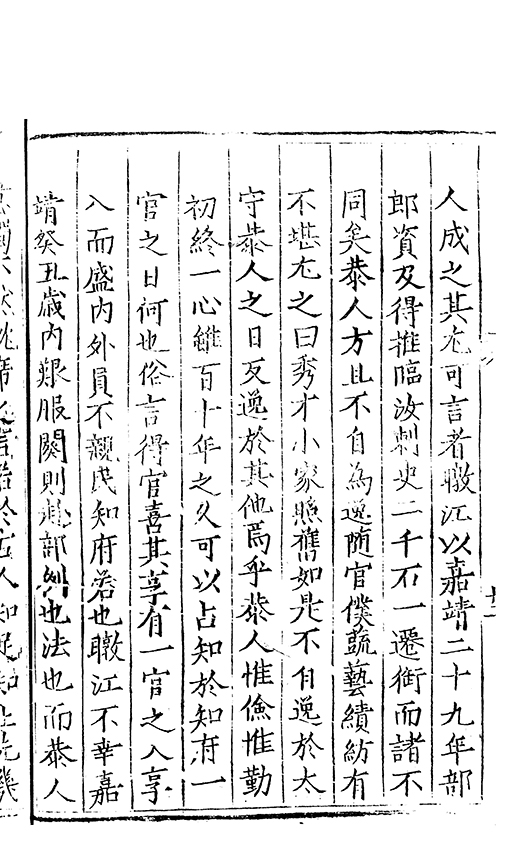 人成之其尤可言者暾江以嘉靖二十九年部
郎資及得推臨汝刺史二千石一遷銜而諸不
同矣恭人方且不自為逸随官僕蔬藝績紡有
不堪尤之曰秀才小家縣舊如是不自逸於太
守恭人之日反逸於其他焉乎恭人惟儉惟勤
初終一心雖百十年之久可以占知於知府一
官之日何也俗言得官喜其享有一官之入享
入而盛内外員不親民知府若也暾江不幸嘉
靖癸丑歲内艱服闋則赴部例也法也而恭人